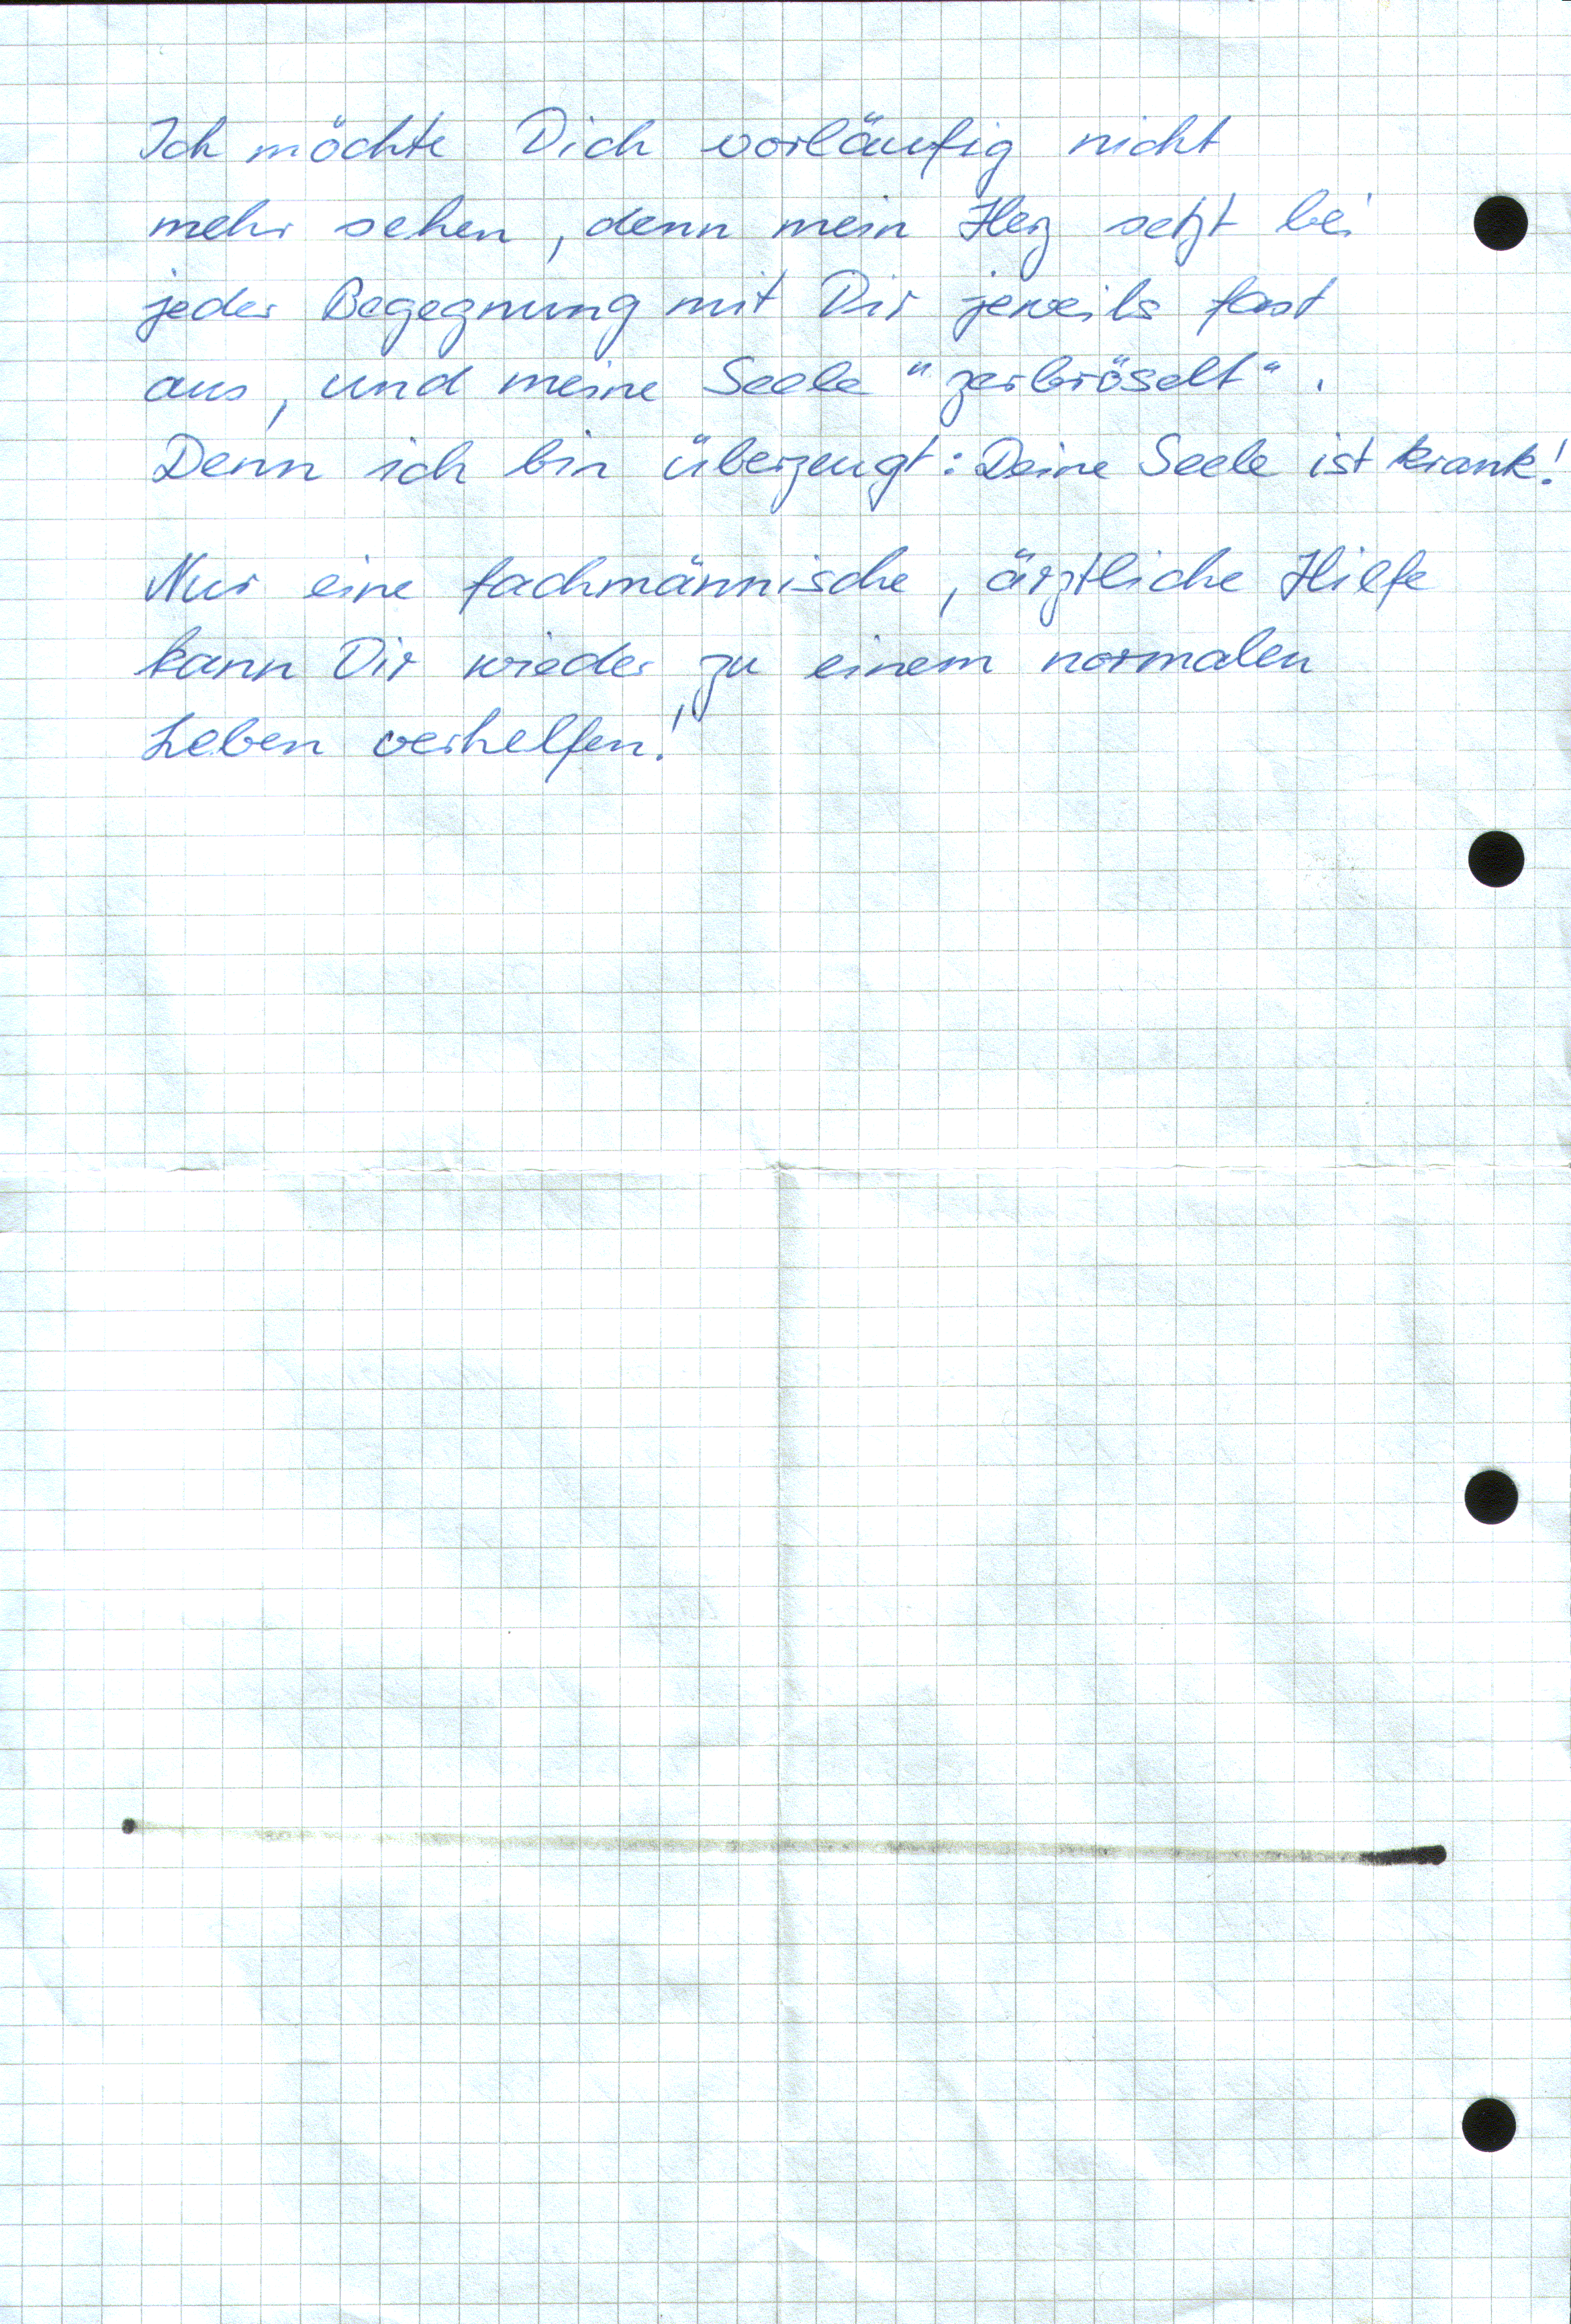 Ich möchte Dich vorläufig nicht
mehr sehen, denn mein Herz setzt bei
jeder Begegnung mit Dir jeweils fast
aus, und meine Seele "zerbröselt".
Denn ich bin überzeugt: Deine Seele ist krank!
Nur eine fachmännische, ärztliche Hilfe
kann Dir wieder zu einem normalen
Leben verhelfen!